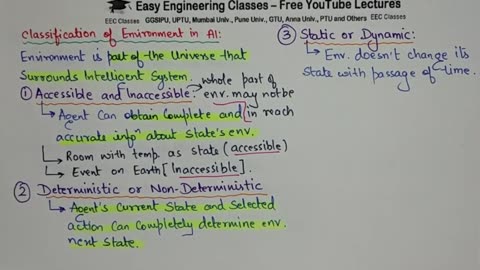 Easy Engineering Classes – Free YouTube Lectures
EEC Classes GGSIPU, UPTU, Mumbai Univ., Pune Univ., GTU, Anna Univ., PTU and Others EEC Classes
Classification of Enironment in AI:
Enironment is part of the Universe that
Surrounds Intelligent System.
① Accessible and Inaccessible: whole part of
env. may not be
in reach
Agent Can obtain Complete and
accurate infoⁿ about State's env.
Room with temp. as state (accessible)
Event on Earth [Inaccessible].
② Deterministic or Non-Deterministic
Agent's Current State and Selected
action Can Completely determine env.
next State.
③ Static or Dynamic:
Env. doesn't change its
State with passage of time.